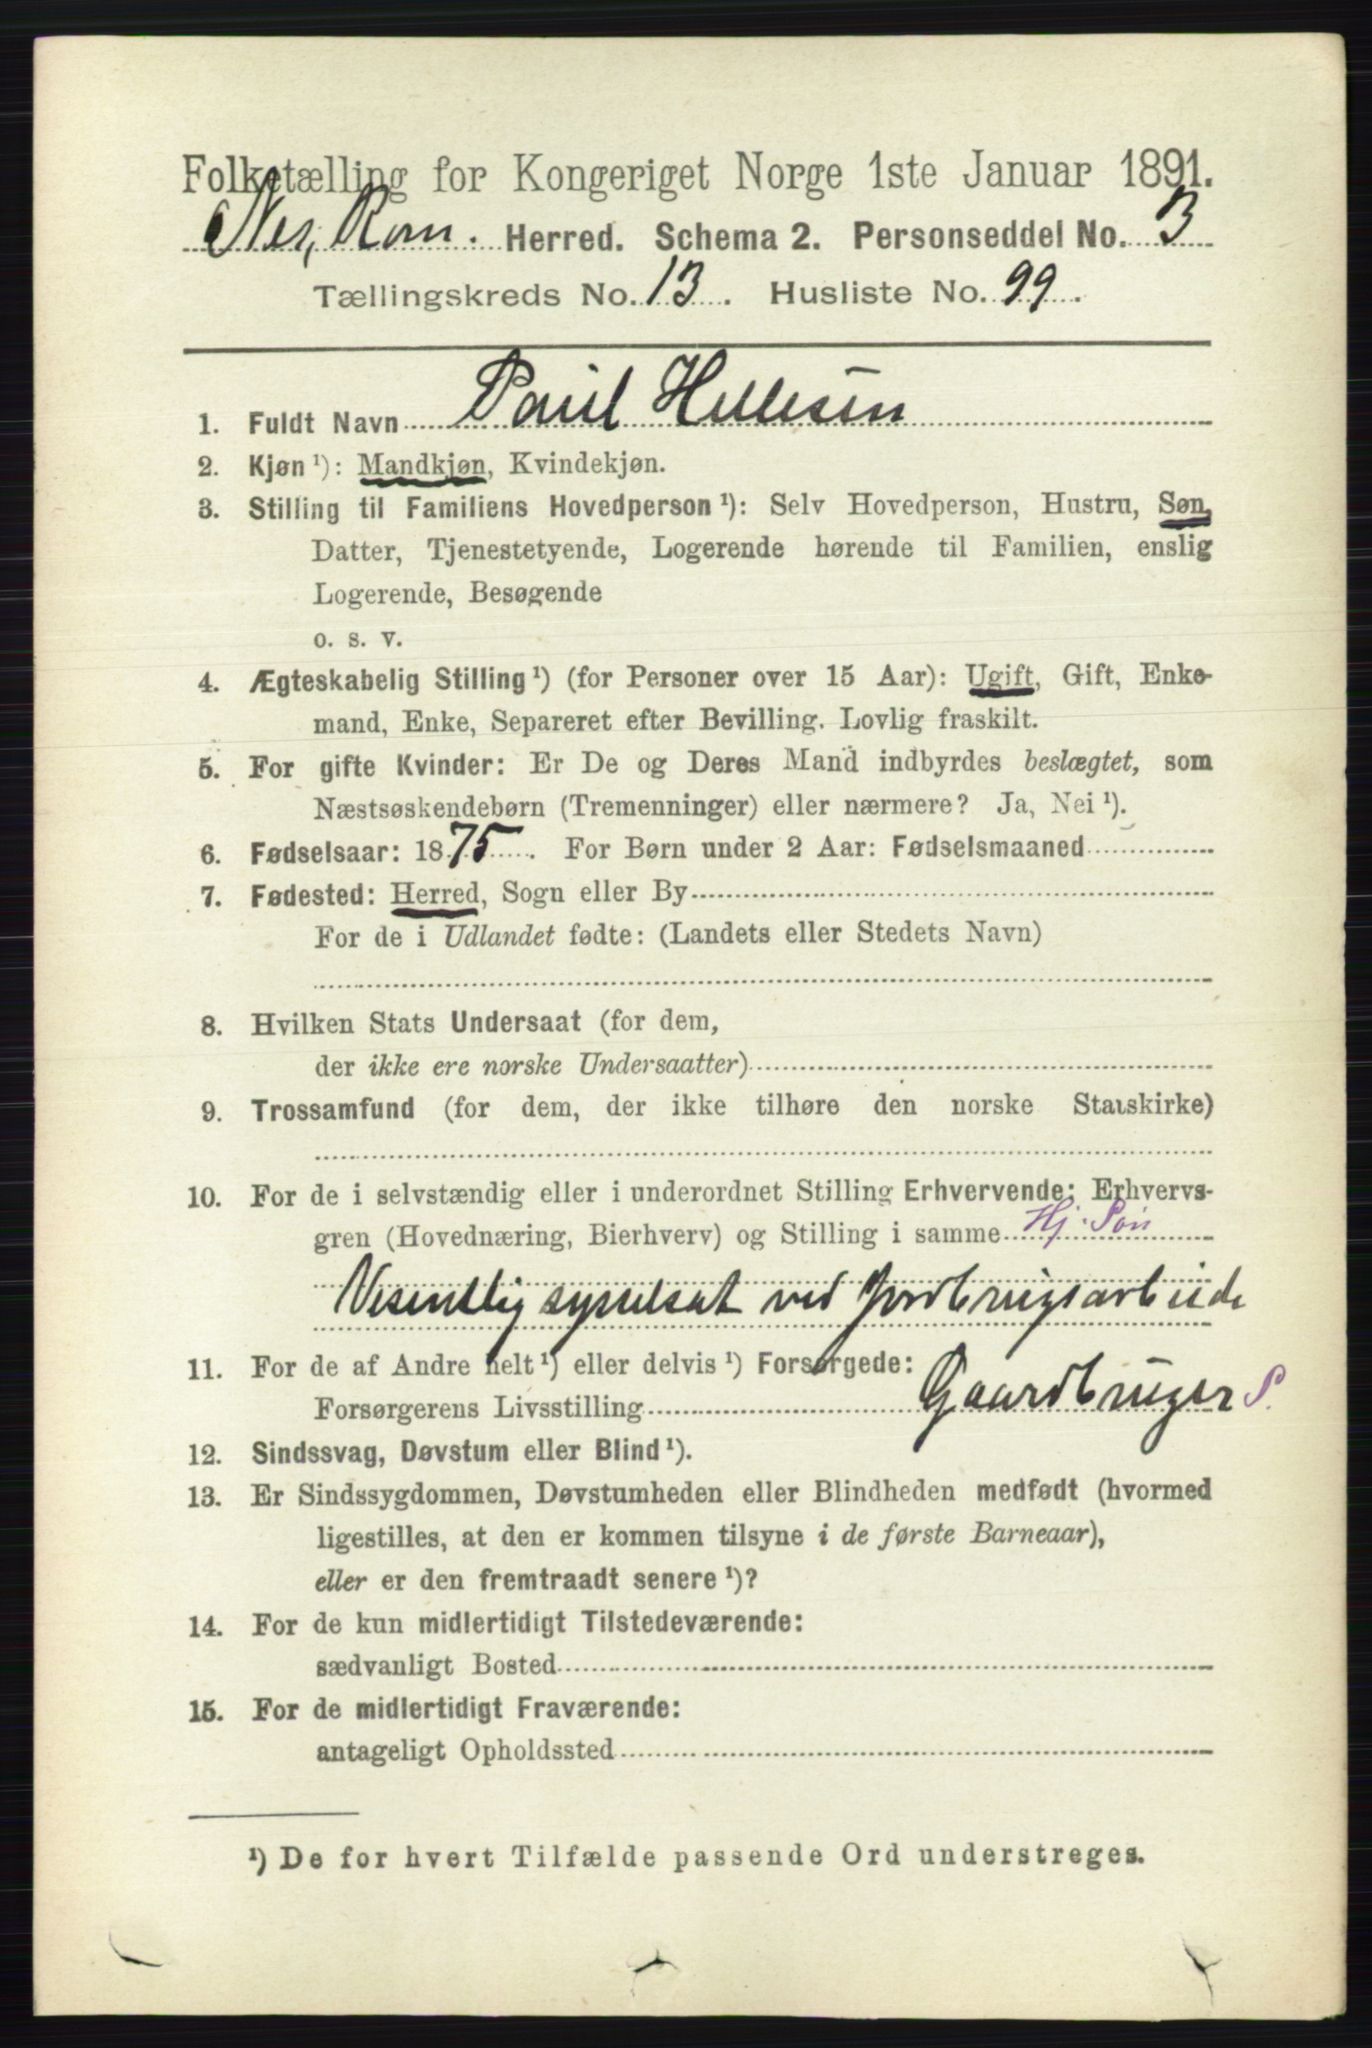 Folketælling for Kongeriget Norge 1ste Januar 1891.
Nes, Rom. Herred. Schema 2. Personseddel No. 3
Tællingskreds No. 13. Husliste No. 99.
1. Fuldt Navn Paul Hellesen
2. Kjøn ¹): Mandkjøn, Kvindekjøn.
3. Stilling til Familiens Hovedperson ¹): Selv Hovedperson, Hustru, Søn,
Datter, Tjenestetyende, Logerende hørende til Familien, enslig
Logerende, Besøgende
o. s. v.
4. Ægteskabelig Stilling ¹) (for Personer over 15 Aar): Ugift, Gift, Enke-
mand, Enke, Separeret efter Bevilling. Lovlig fraskilt.
5. For gifte Kvinder: Er De og Deres Mand indbyrdes beslægtet, som
Næstsøskendebørn (Tremenninger) eller nærmere? Ja, Nei ¹).
6. Fødselsaar: 1875. For Børn under 2 Aar: Fødselsmaaned
7. Fødested: Herred, Sogn eller By
For de i Udlandet fødte: (Landets eller Stedets Navn)
8. Hvilken Stats Undersaat (for dem,
der ikke ere norske Undersaatter)
9. Trossamfund (for dem, der ikke tilhøre den norske Statskirke)
10. For de i selvstændig eller i underordnet Stilling Erhvervende: Erhvervs-
gren (Hovednæring, Bierhverv) og Stilling i samme Hj. Søn
Vesentlig sysselsat ved Jordbrugsarbeide
11. For de af Andre helt ¹) eller delvis ¹) Forsørgede:
Forsørgerens Livsstilling Gaardbruger S.
12. Sindssvag, Døvstum eller Blind ¹).
13. Er Sindssygdommen, Døvstumheden eller Blindheden medfødt (hvormed
ligestilles, at den er kommen tilsyne i de første Barneaar),
eller er den fremtraadt senere ¹)?
14. For de kun midlertidigt Tilstedeværende:
sædvanligt Bosted
15. For de midlertidigt Fraværende:
antageligt Opholdssted
¹) De for hvert Tilfælde passende Ord understreges.